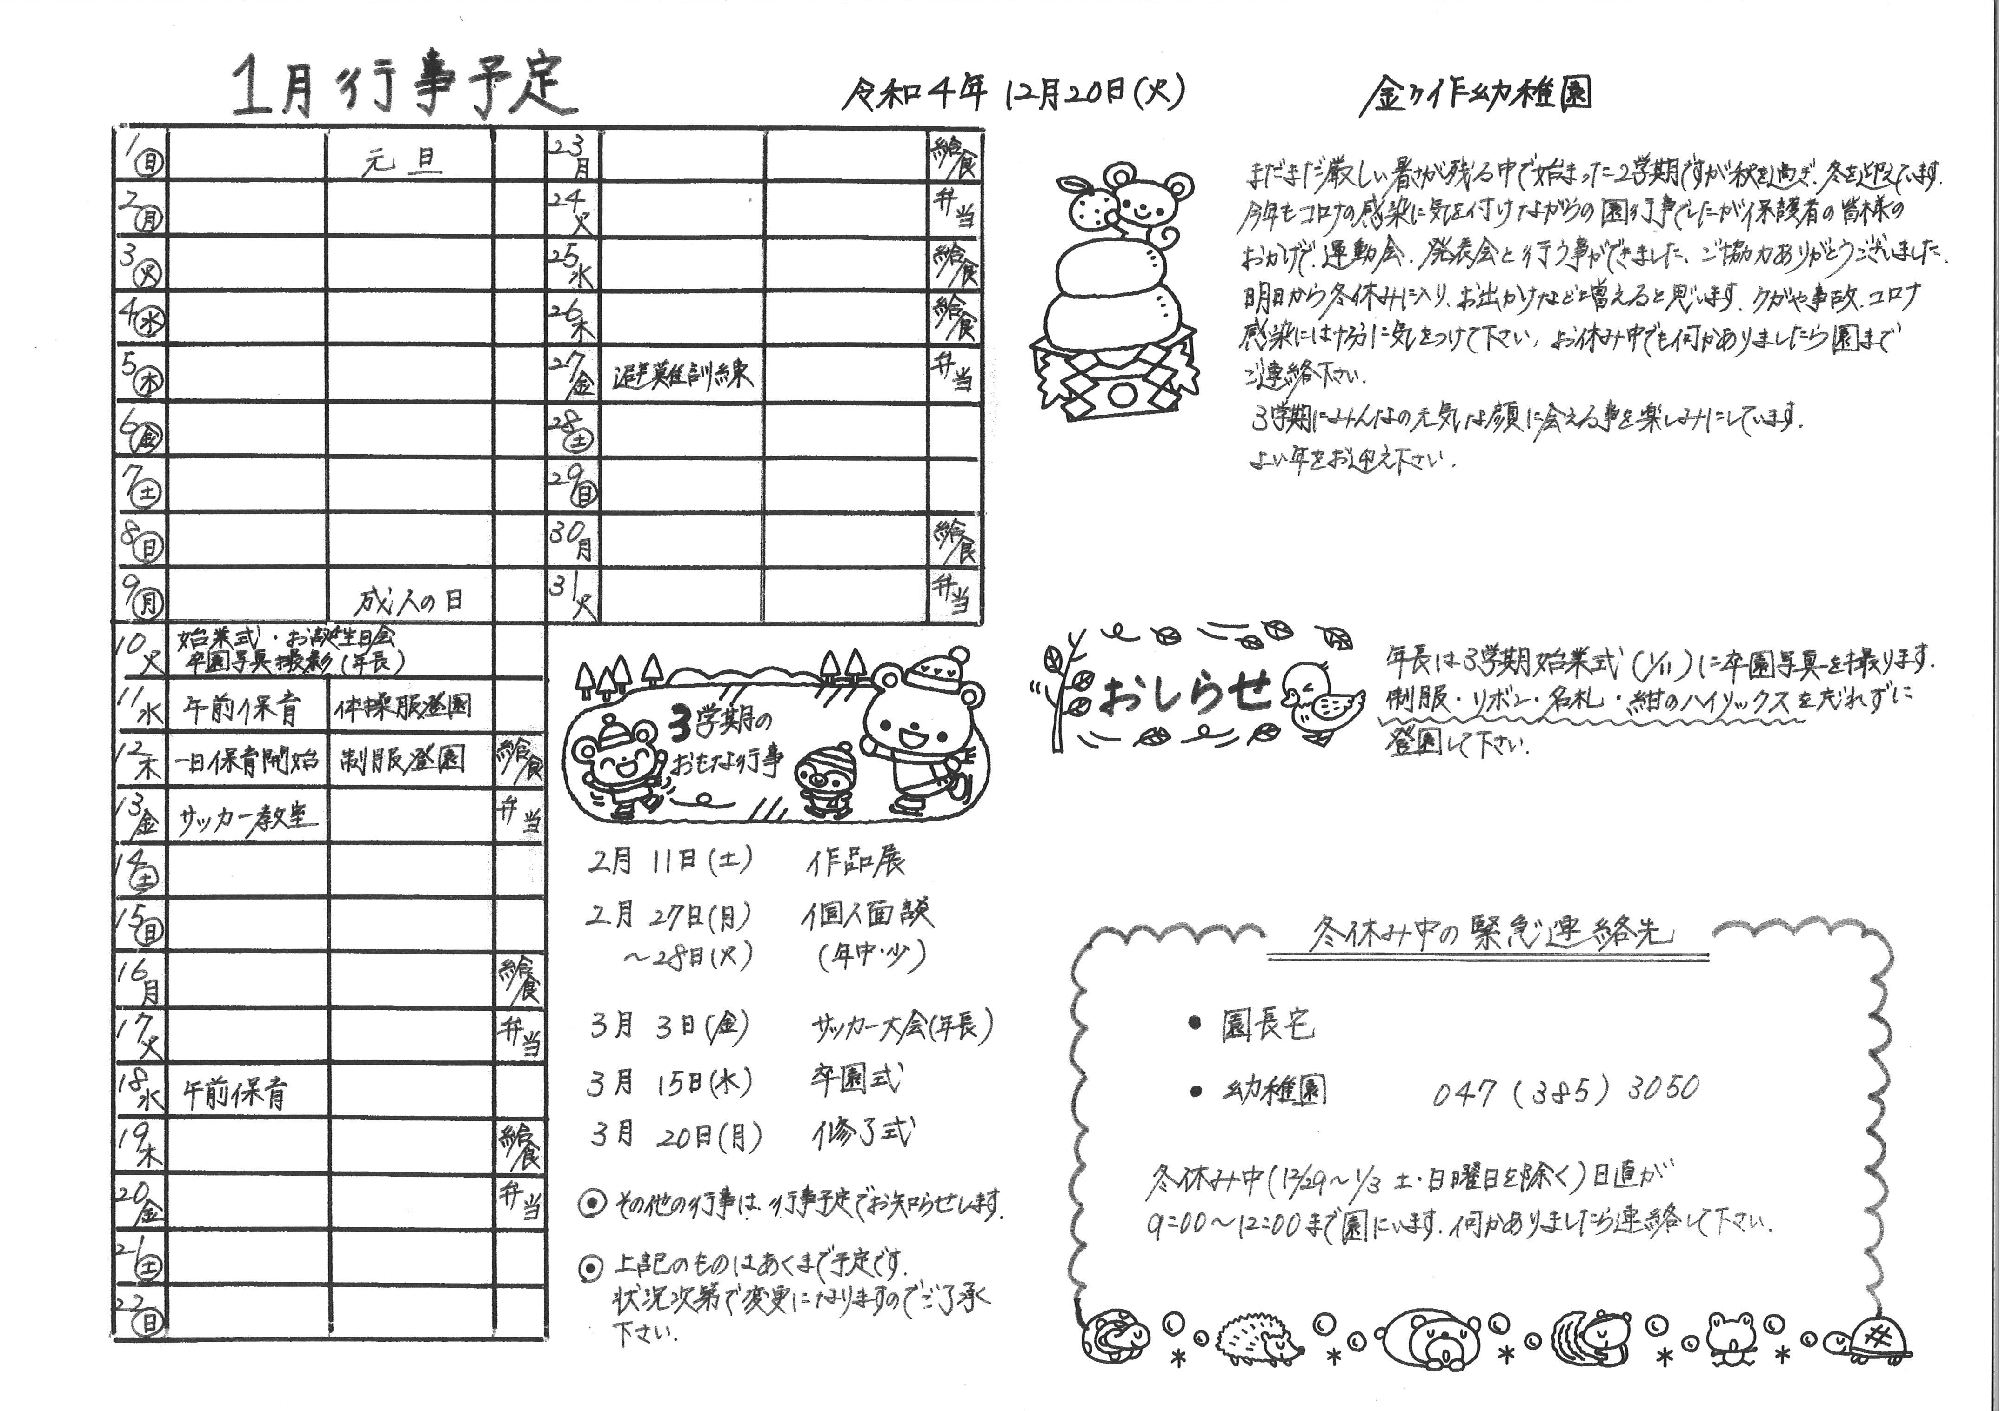 1月行事予定
令和4年 12月20日(火)
金ヶ作幼稚園
1 日 元旦
2 月
3 火
4 水
5 木
6 金
7 土
8 日
9 月 成人の日
10 火 始業式・お誕生日会
卒園写真撮影(年長)
11 水 午前保育 体操服登園
12 木 一日保育開始 制服登園 給食
13 金 サッカー教室 弁当
14 土
15 日
16 月 給食
17 火 弁当
18 水 午前保育
19 木 給食
20 金 弁当
21 土
22 日
23 月 給食
24 火 弁当
25 水 給食
26 木 給食
27 金 避難訓練 弁当
28 土
29 日
30 月 給食
31 火 弁当
3学期の
おもな行事
2月 11日(土) 作品展
2月 27日(月) 個人面談
〜28日(火) (年中・少)
3月 3日(金) サッカー大会(年長)
3月 15日(水) 卒園式
3月 20日(月) 修了式
◉ その他の行事は、行事予定でお知らせします.
◉ 上記のものはあくまで予定です.
状況次第で変更になりますのでご了承
下さい.
まだまだ厳しい暑さが残る中で始まった2学期ですが秋を過ぎ、冬を迎えています.
今年もコロナの感染に気を付けながらの園行事でしたが保護者の皆様の
おかげで、運動会、発表会と行う事ができました、ご協力ありがとうございました.
明日から冬休みに入り、お出かけなどと増えると思います. ケガや事故、コロナ
感染には十分に気をつけて下さい. お休み中でも何かありましたら園まで
ご連絡下さい.
3学期にみんなの元気な顔に会える事を楽しみにしています.
よい年をお迎え下さい.
おしらせ
年長は3学期始業式(1/11)に卒園写真を撮ります.
制服・リボン・名札・紺のハイソックスを忘れずに
登園して下さい.
冬休み中の緊急連絡先
• 園長宅
• 幼稚園 047(385)3050
冬休み中(12/29〜1/3 土・日曜日を除く)日直が
9:00〜12:00まで園にいます. 何かありましたら連絡して下さい.